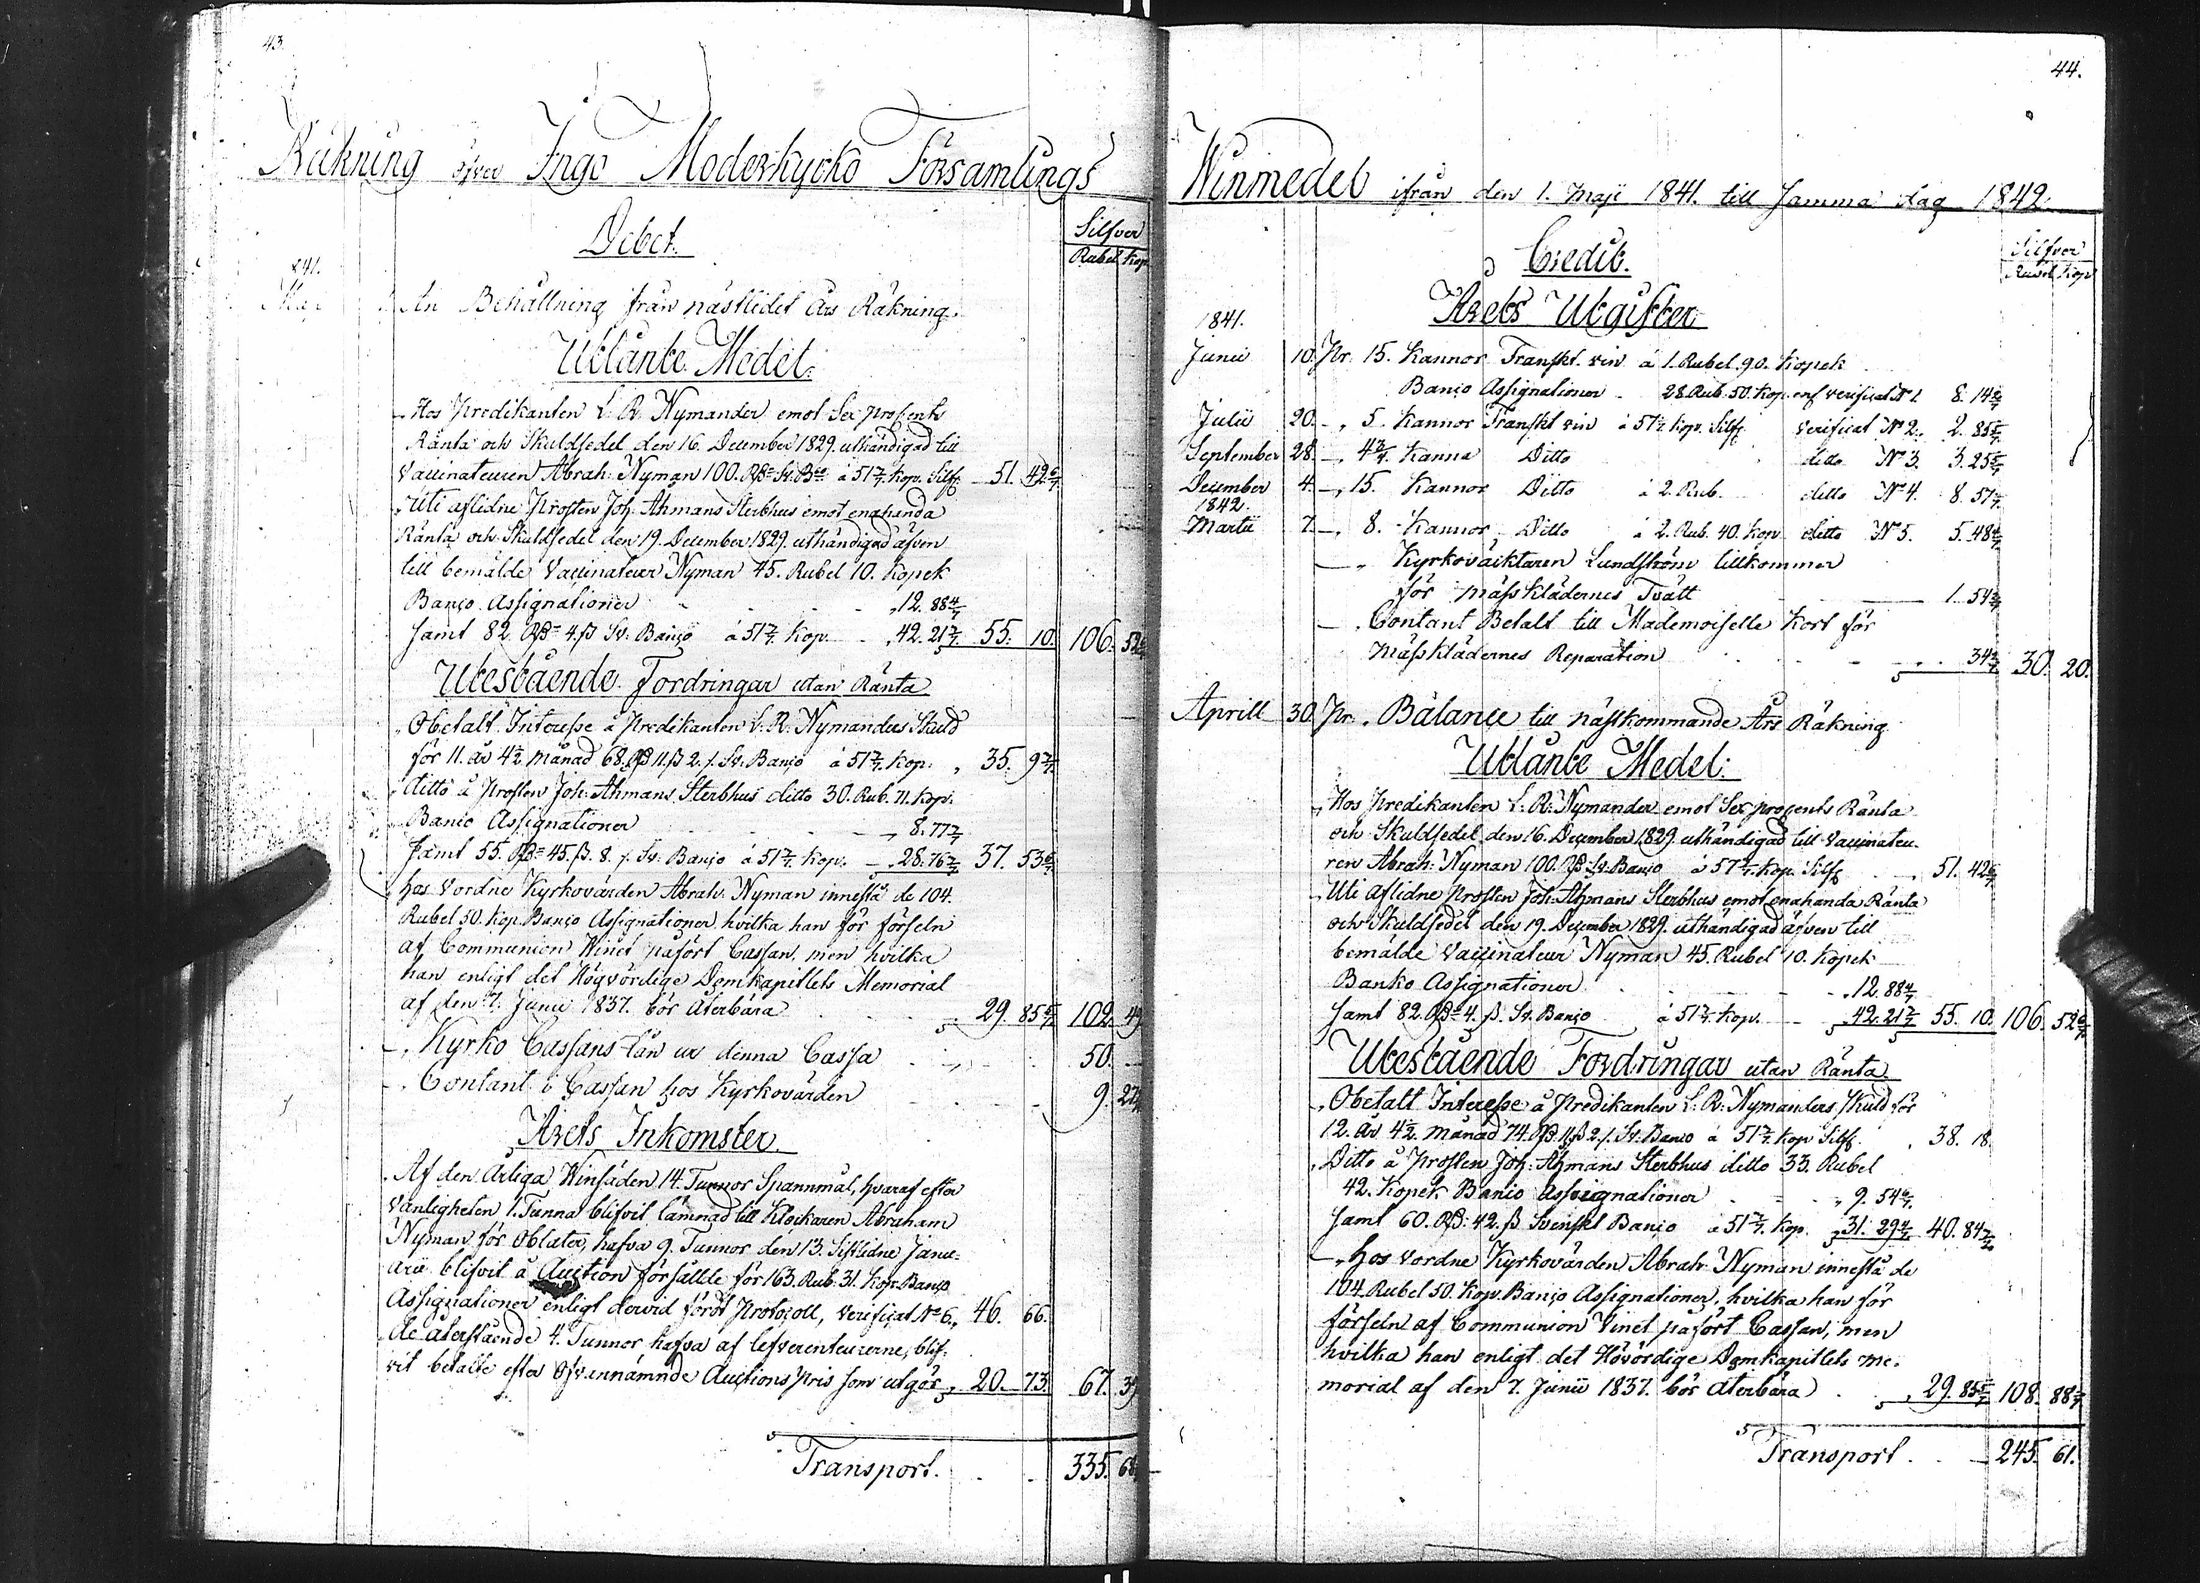 43.
Räkning öfver Ingo Moderkyrko Församlings
Debet.
Silfver
Rubel Kop.
1841.
Maji
An Behållning från nästledet Års Räkning.
Utlånte Medel:
Hos Predikanten L. R. Nymander emot Sex procents
Ränta och Skuldsedel den 16. December 1829. uthändigad till
Vaccinateuren Abrah: Nyman 100. Rdr Sv. Bco à 51 3/7 Kop. Silfr 51. 42 6/7
Uti aflidne Prosten Joh. Ahmans Sterbhus emot enahanda
Ränta och Skuldsedel den 19. December 1829. uthändigad äfven
till bemälde Vaccinateur Nyman 45. Rubel 10. Kopek
Banco Assignationer 12. 88 4/7
Samt 82. Rdr 4. ß Sv. Banco à 51 3/7 Kop. 42. 21 3/7 55. 10. 106. 52 6/7
Utestående Fordringar utan Ränta
Obetalt Interesse å Predikanten L. R. Nymanders Skuld
för 11. år 4 1/2 månad 68. Rdr 11. ß 2. r. Sv. Banco à 51 3/7 Kop. 35. 9 3/7
ditto å Prosten Joh. Ahmans Sterbhus ditto 30. Rub. 71. Kop.
Banco Assignationer 8. 77 3/7
Samt 55. Rdr 45. ß. 8. r. Sv. Banco à 51 3/7 Kop. 28. 76 3/7 37. 53 6/7
Hos Vordne Kyrkovärden Abrah. Nyman innestå de 104.
Rubel 50. Kop. Banco Assignationer hvilka han för förseln
af Communion Winet påfört Cassan, men hvilka
han enligt det Högvördige Domkapitlets Memorial
af den 7. Junii 1837. bör återbära 29. 85 5/7 102. 49
Kyrko Cassans Lån ur denna Cassa 50.
Contant i Cassan hos Kyrkovärden 9.
Årets Inkomster.
Af den Årliga Winsäden 14. Tunnor Spannmål, hvaraf efter
vanligheten 1. Tunna blifvit lämnad till Klockaren Abraham
Nyman för Oblater, hafva 9. Tunnor den 13. Sistlidne Janu-
arii blifvit å Auction försållde för 163. Rub. 31. Kop. Banco
Assignationer enligt dervid fördt Protocoll, Verificat No 6. 46. 66.
de återstående 4. Tunnor, hafva af lefverenteurerne, blif-
vit betalte efter ofvannämnde Auctions Pris som utgör 20. 73. 67. 39
Transport. 335. 68
44.
Winmedel ifrån den 1. Maji 1841. till samma dag 1842.
Credit.
Silfver
Rubel Kop
Årets Utgifter
1841.
Junii 10. Pr. 15. Kannor Franskt vin à 1. Rubel 90. Kopek
Banco Assignationer 28. Rub. 50. Kop. enl verificat No 1. 8. 14 2/7
Julii 20. 5. Kannor Franskt vin à 57 1/7 Kop. Silfr verificat No 2. 2. 85 5/7
September 28. 4 3/4. Kanna Ditto ditto No 3. 3. 25 5/7
December 4. 15. Kannor Ditto à 2. Rub. ditto No 4. 8. 57 1/7
1842.
Martii 7. 8. Kannor Ditto à 2. Rub. 40. Kop. ditto No 5. 5. 48 4/7
Kyrkoväcktaren Lundström tillkommer
för Mässklädernes Tvätt 1. 54 2/7
Contant Betalt till Mademoiselle Kort för
Mässklädernes Reparation 34 2/7 30. 20.
Aprill 30. Pr. Balance till nästkommande Års Räkning
Utlånte Medel:
Hos Predikanten L. R. Nymander emot Sex procents Ränta
och Skuldsedel den 16. December 1829. uthändigad till Vaccinateu-
ren Abrah. Nyman 100. Rdr Sv. Banco à 51 3/7 Kop. Silfr 51. 42 6/7
Uti aflidne Prosten Joh. Ahmans Sterbhus emot enahanda Ränta
och Skuldsedel den 19. December 1829. uthändigad äfven till
bemälde Vaccinateur Nyman 45. Rubel 10. Kopek
Banko Assignationer 12. 88 4/7
Samt 82. Rdr 4. ß. Sv. Banco à 51 3/7 Kop. 42. 21 3/7 55. 10. 106. 52 6/7
Utestående Fordringar utan Ränta.
Obetalt Interesse å Predikanten L. R. Nymanders Skuld för
12. år 4 1/2. månad 74. Rdr 11 ß 2. r. Sv. Banco à 51 3/7. Kop Silfr 38. 18.
Ditto å Prosten Joh. Ahmans Sterbhus ditto 33. Rubel
42. Kopek Banco Assignationer 9. 54 6/7.
Samt 60. Rdr 42. ß Svenskt Banco à 51 3/7. Kop. 31. 29 2/7 40. 84
Hos Vordne Kyrkovärden Abrah. Nyman innestå de
104. Rubel 50. Kop. Banco Assignationer, hvilka han för
förseln af Communion Vinet påfört Cassan, men
hvilka han enligt det Hövördige Domkapitlets Me-
morial af den 7. Junii 1837. bör återbära 29. 85 5/7 108. 88
Transport. 245. 61.